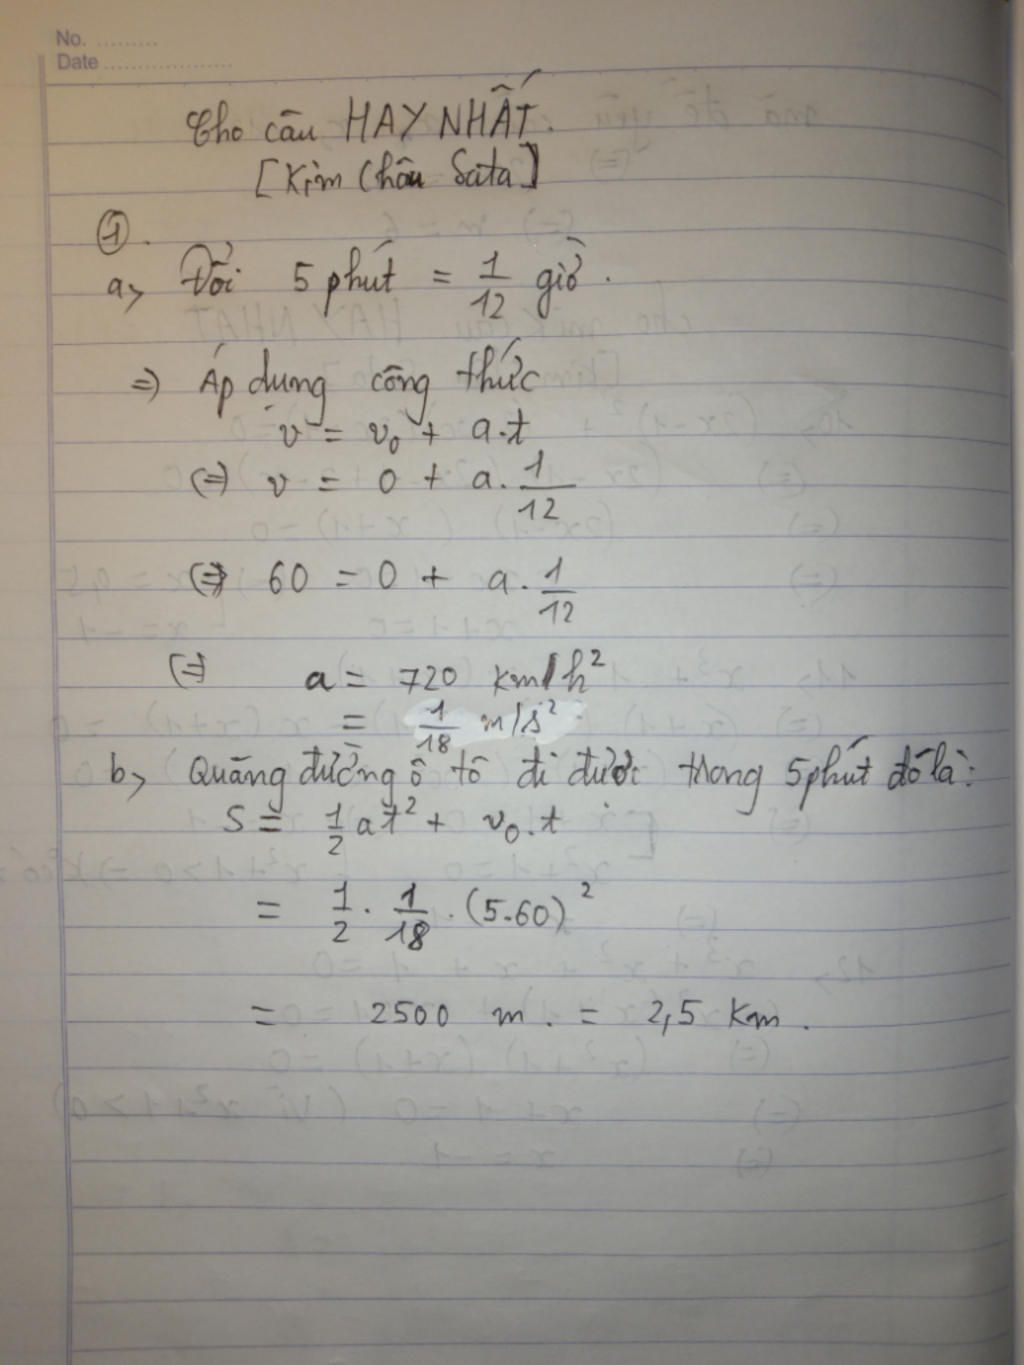 No. .........
Date ...................
Cho câu HAY NHẤT.
[Kim Châu Sata]
①.
a, Đổi 5 phút = 1/12 giờ.
=> Áp dụng công thức
v = v₀ + a.t
(=) v = 0 + a. 1/12
(=) 60 = 0 + a. 1/12
(=) a = 720 km/h²
= 1/18 m/s²
b, Quãng đường ô tô đi được trong 5 phút đó là:
S = 1/2 at² + v₀.t
= 1/2 . 1/18 . (5.60)²
= 2500 m. = 2,5 km.